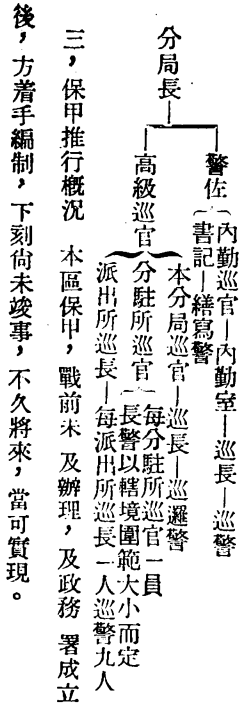 分局長
警佐
內勤巡官—內勤室—巡長—巡警
書記—繕寫警
高級巡官
本分局巡官—巡長—巡邏警
分駐所巡官
每分駐所巡官一員
長警以轄境圍範大小而定
派出所巡長—每派出所巡長一人巡警九人
三,保甲推行概況 本區保甲,戰前未 及辦理,及政務 署成立
後,方着手編制,下刻尙未竣事,不久將來,當可實現。